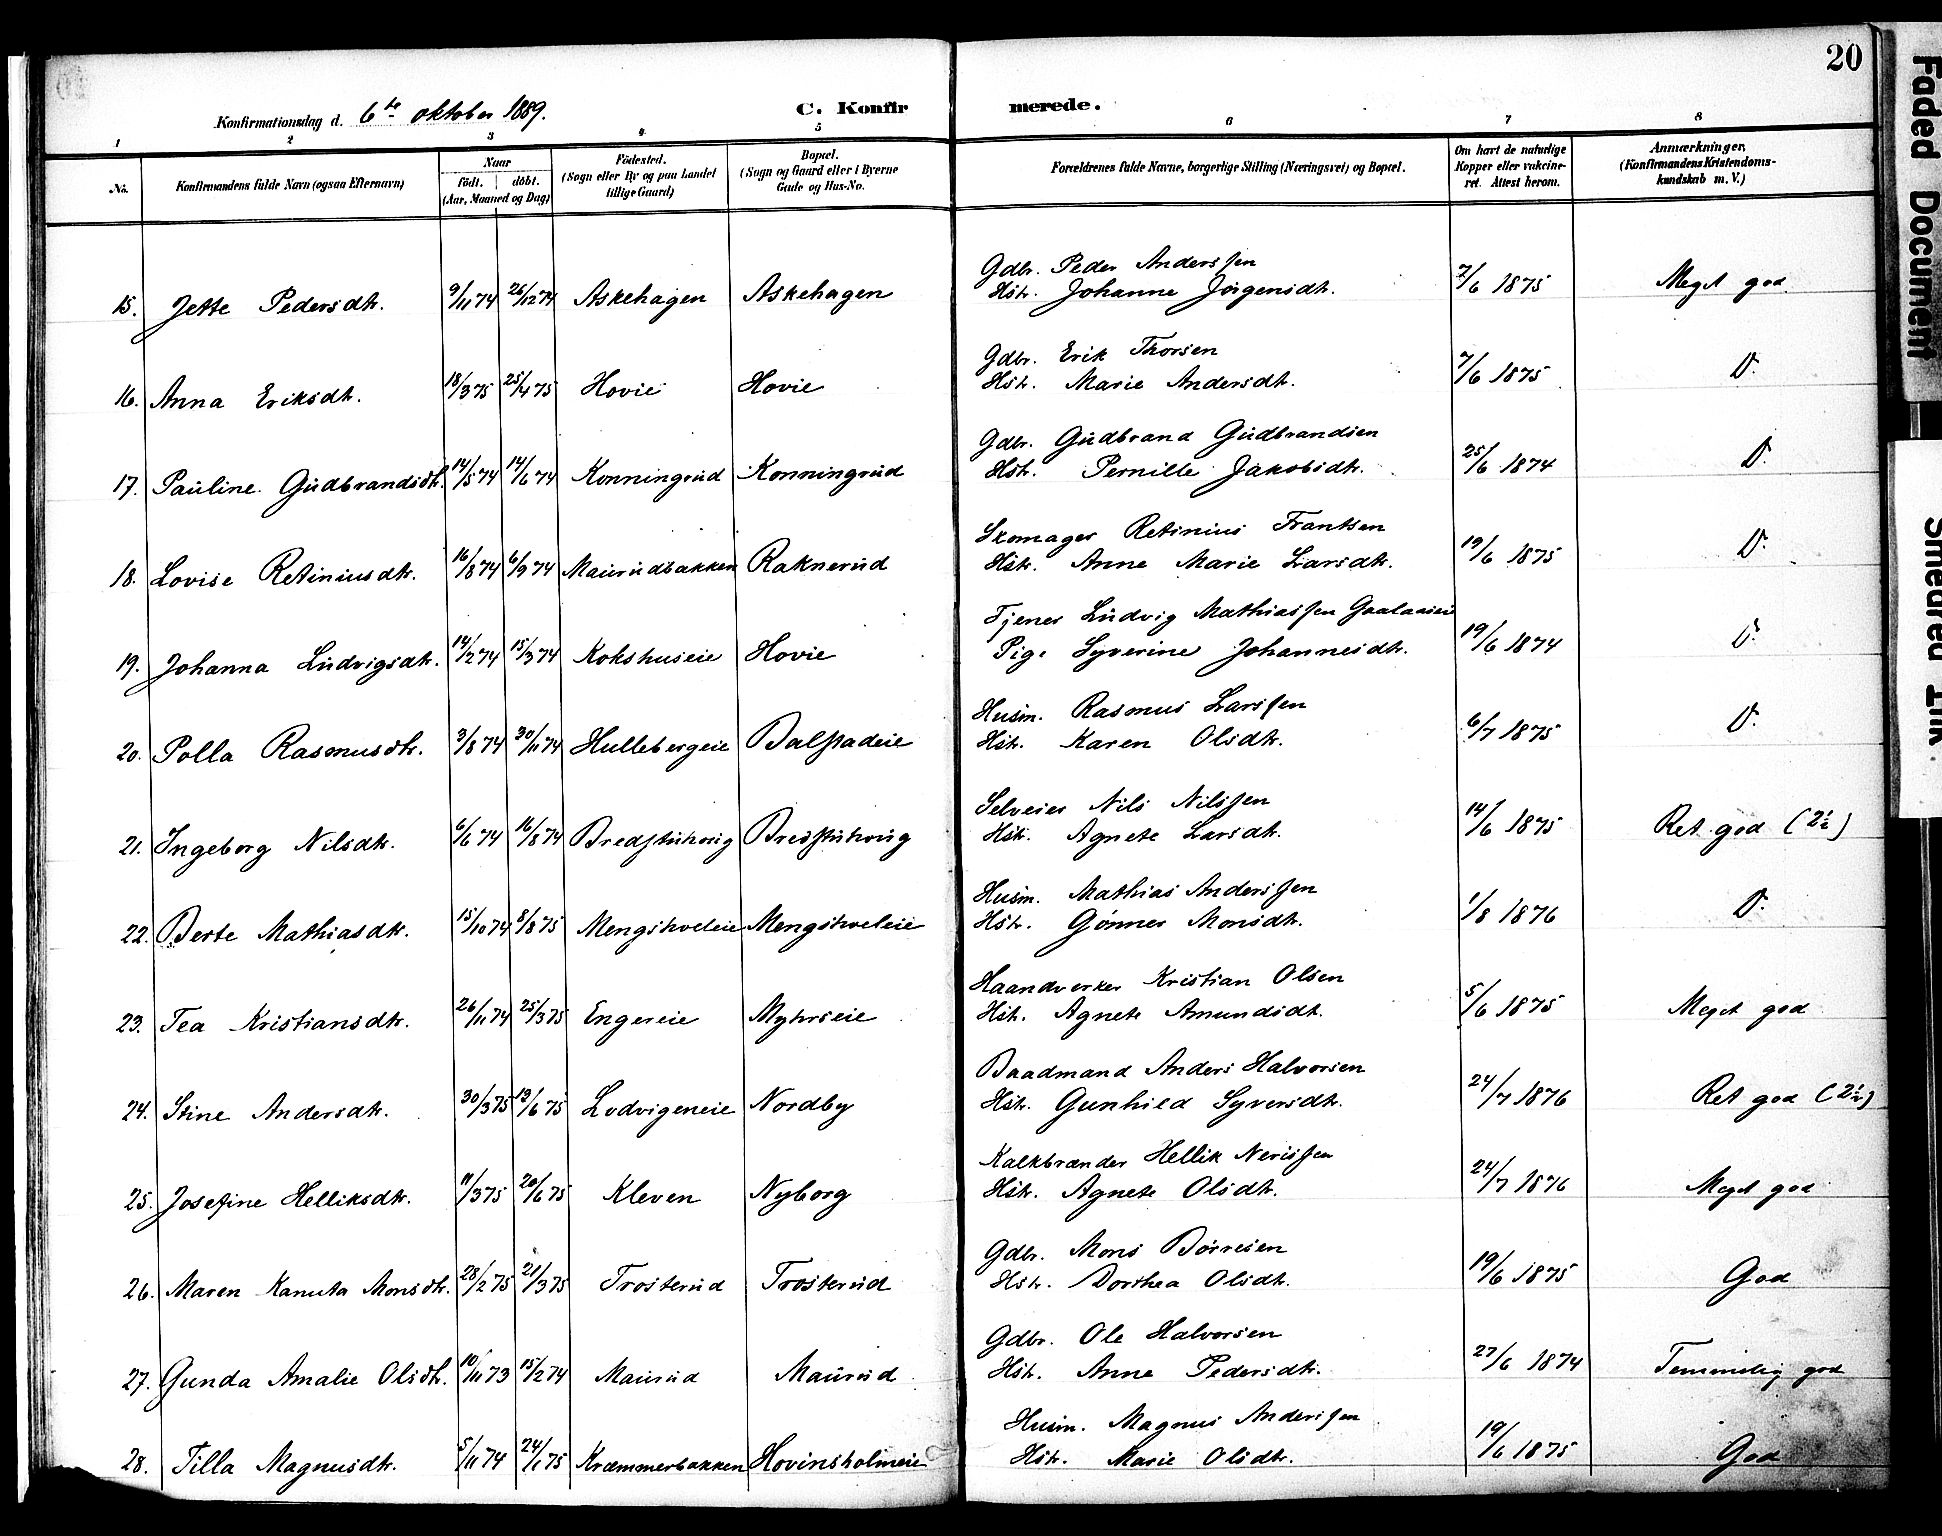 20
Konfirmationsdag d. 6te oktober 1889.
C. Konfirmerede.
1 2 3 4 5 6 7 8
No. Konfirmandens fulde Navn (ogsaa Efternavn) Naar født. døbt. (Aar, Maaned og Dag) Fødested. (Sogn eller By og paa Landet tillige Gaard) Bopæl. (Sogn og Gaard eller i Byerne Gade og Hus-No. Forældrenes fulde Navne, borgerlige Stilling (Næringsvei) og Bopæl. Om havt de naturlige Kopper eller vakcineret. Attest herom. Anmærkninger. (Konfirmandens Kristendomskundskab m. V.)
Gdbr. Peder Anderssen
15. Jette Pedersdtr. 9/11 74 26/12 74 Askehagen Askehagen Hstr. Johanne Jørgensdtr. 7/6 1875 Meget god.
Gdbr. Erik Thorsen
16. Anna Eriksdtr. 18/3 75 25/4 75 Hovie Hovie Hstr. Marie Andersdtr. 7/6 1875 D.
Gdbr. Gudbrand Gudbrandsen
17. Pauline Gudbrandsdtr. 14/5 74 14/6 74 Konningrud Konningrud Hstr. Pernille Jakobsdtr. 25/6 1874 D.
Skomager Retinius Frantsen
18. Lovise Retiniusdtr. 16/8 74 6/9 74 Maurudbakken Raknerud Hstr. Anne Marie Larsdtr. 19/6 1875 D.
Tjener Ludvig Mathiassen Gaalaaseie
19. Johanna Ludvigsdtr. 14/2 74 15/3 74 Kokshuseie Hovie Pige Syverine Johannesdtr. 19/6 1874 D.
Husm. Rasmus Larssen
20. Polla Rasmusdtr. 3/8 74 30/11 74 Hullebergeie Balstadeie Hstr. Karen Olsdtr. 6/7 1875 D.
Selveier Nils Nilssen
21. Ingeborg Nilsdtr. 6/6 74 16/8 74 Bredstuhovig Bredstuhovig Hstr. Agnete Larsdtr. 14/6 1875 Ret god (2½)
Husm. Mathias Anderssen
22. Berte Mathiasdtr. 15/10 74 8/8 75 Mengshoeleie Mengshoeleie Hstr. Gønner Monsdtr. 1/8 1876 D.
Haandverker Kristian Olsen
23. Tea Kristiansdtr. 26/11 74 25/3 75 Engereie Myhrseie Hstr. Agnete Amundsdtr. 5/6 1875 Meget god
Baadmand Anders Halvorsen
24. Stine Andersdtr. 30/3 75 13/6 75 Lodvigeneie Nordby Hstr. Gunhild Syversdtr. 24/7 1876 Ret god (2½)
Kalkbrænder Hellik Nerissen
25. Josefine Helliksdtr. 11/3 75 20/6 75 Kleven Nyborg Hstr. Agnete Olsdtr. 24/7 1876 Meget god
Gdbr. Mons Børresen
26. Maren Kanuta Monsdtr. 28/2 75 21/3 75 Trosterud Trosterud Hstr. Dorthea Olsdtr. 19/6 1875 God
Gdbr. Ole Halvorsen
27. Gunda Amalie Olsdtr. 10/11 73 15/2 74 Maurud Maurud Hstr. Anne Pedersdtr. 27/6 1874 Temmelig god
Husm. Magnus Anderssen
28. Tilla Magnusdtr. 5/11 74 24/1 75 Kræmmerbakken Hovinsholmeie Hstr. Marie Olsdtr. 19/6 1875 God
Faded Document
Smeared Ink.